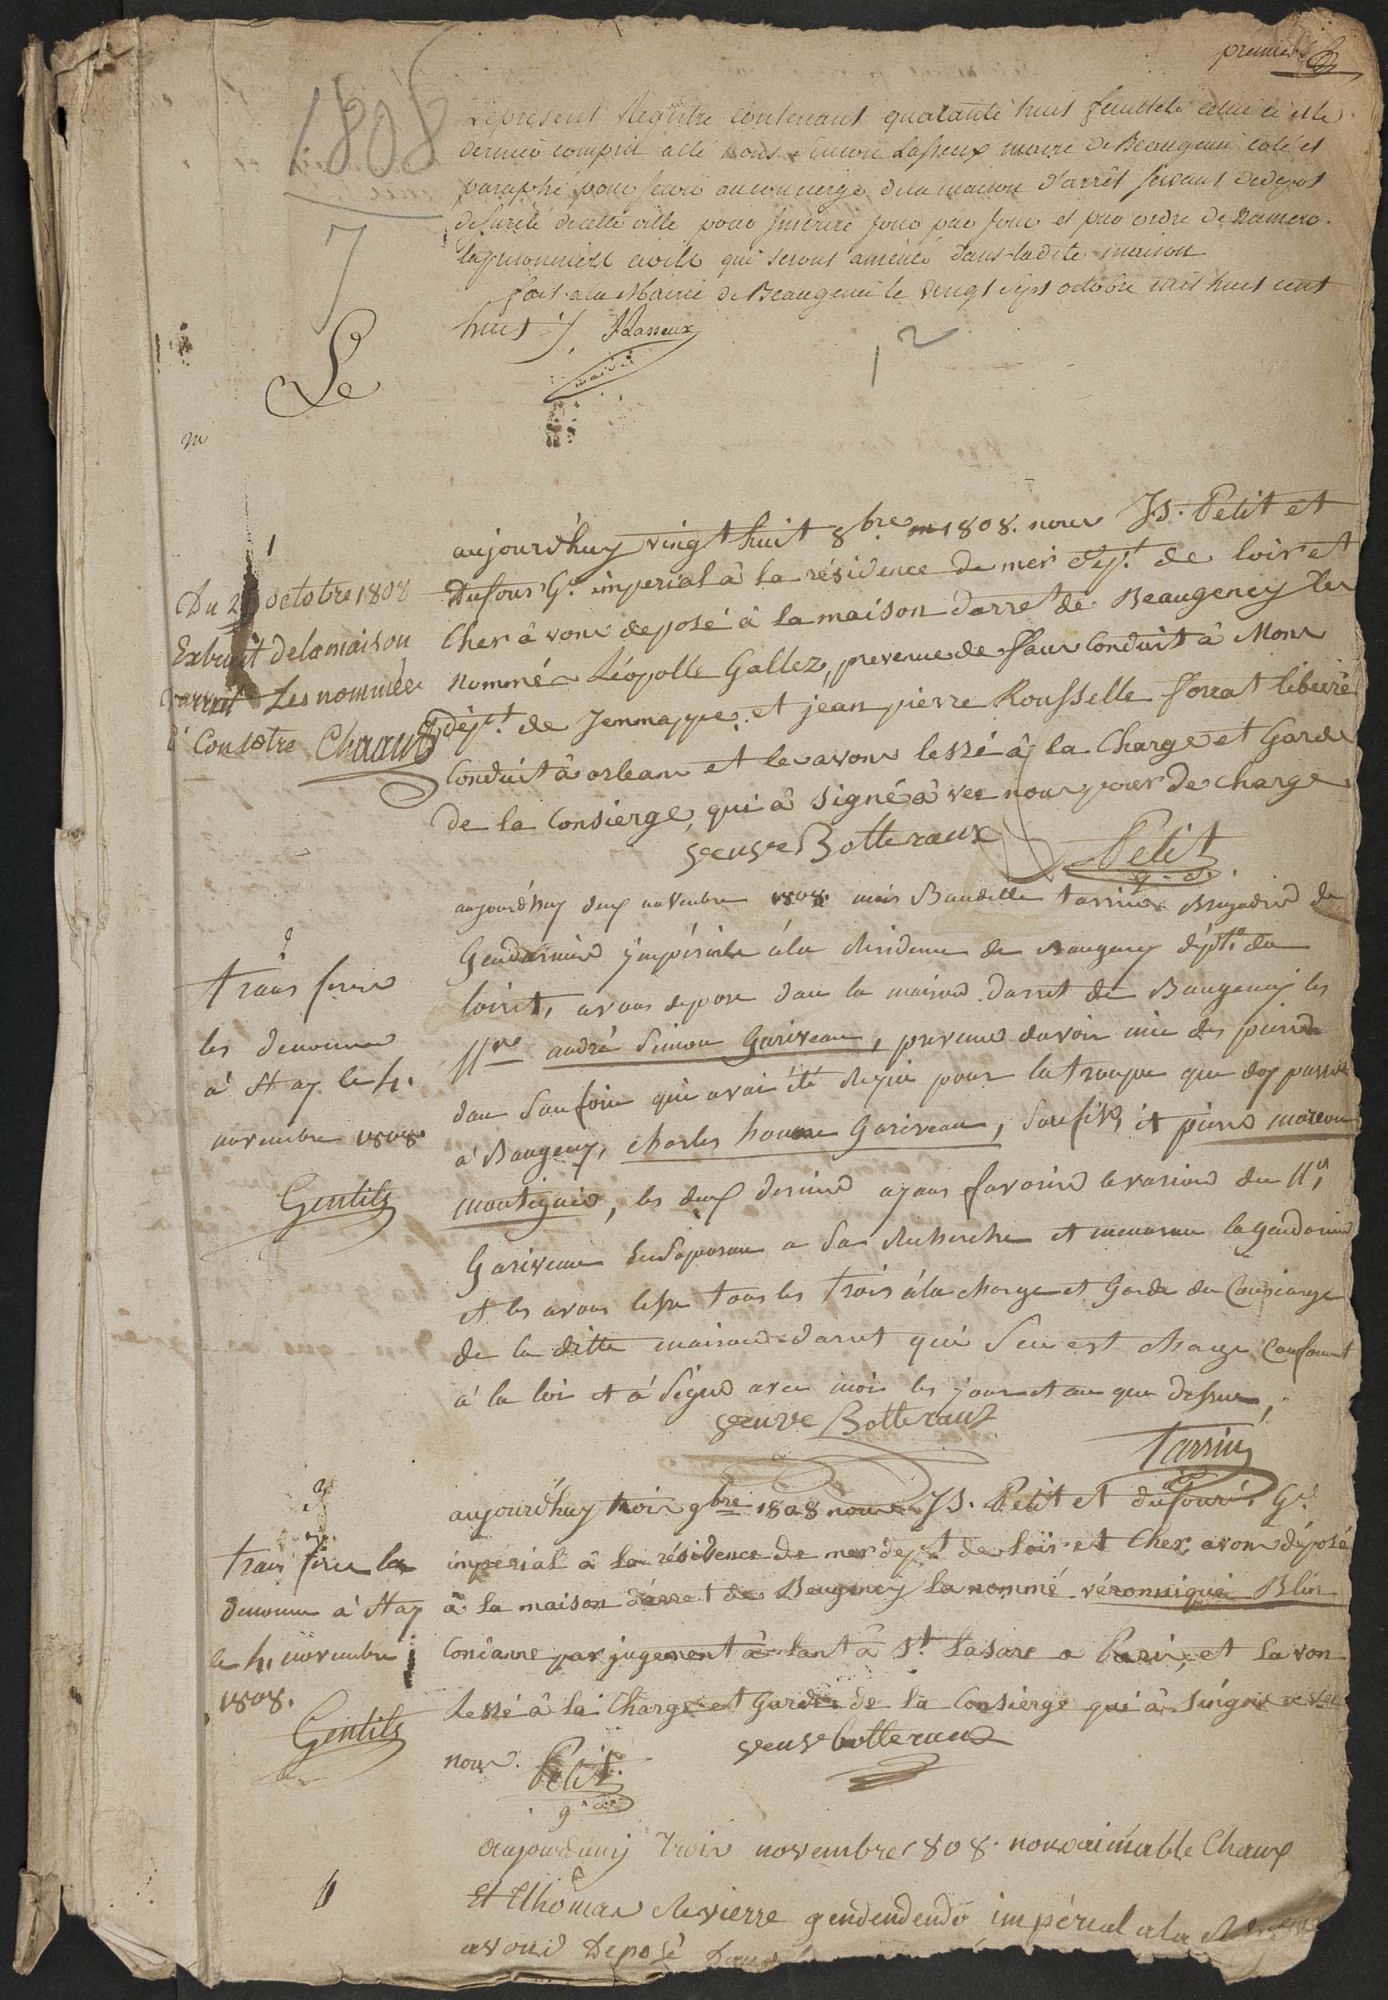 premier
1808
7
Le présent Registre contenant quarante huit feuillets celui ci et le
dernier compris a été par nous Lasseux maire de Beaugenci coté et
paraphé pour servir au concierge de la maison d'arrêt servant de depot
de sureté de cette ville pour inscrire jour par jour et par ordre de Numero
les prisonniers civils qui seront amenés dans ladite maison
fait a la Mairie de Beaugenci le vingt sept octobre mil huit cent
huit Lasseux
maire
12
Le
m
1
Du 29 octobre 1808
Extrait de la maison
darret Les nommées
Ci Contre Chaaux
aujourd'huy vingt huit 8bre 1808. nous JS. Petit et
Dufour Ge. imperial â la résidence de mer dept. de loir et
Cher â vons deposé â la maison darret de Beaugency les
nommés Léopolle Gallez, prevenue de faux Conduit â Mons
dépt. de Jemmappes. et jean pierre Rousselle forcat libéré
Conduit â orleans et les avons lessé â la Charge et Garde
de la Consierge, qui â signé â vec nous pour de charge
veuve Botteraux Petit
g. d.
2
transferé
les denommé
à St ay le 4.
novembre 1808
Gentils
aujourdhuy deux novembre 1808. mois Baudille tarrius Brigadié de
Gendarmerie jmpériale à la Residence de Baugency dépte. du
loiret, avons depose dans la maison darret de Baugency les
Nre andré Simon Gariveau, prevenu davoir mis des pierre
dans Sanfoin qui avai été Requis pour la troupe que doy passer
à Baugency, charles honore Gariveau, Son fils et pierre moreau
montigné, les deux dernier ayans favorisé levasion du Né,
Gariveau En Soposan a Sa Recherche et menacan la gendarmerie
et les avons lesse tous les trois à la charge et Garde du Consierge
de la ditte maison darret qui Sen est charge Conformt
à la loi et à Signé avec mois les jour et an que dessus,
veuve Botteraux
Tarrius
3
transferé la
denommé à St ay
le 4, novembre
1808.
Gentils
aujourd'huy trois 9bre 1808 nous JS. Petit et dufour. Ge.
impérial â la résidence de mer dept de loir et Cher, avons déposé
â la maison d'arret de Beugency la nommé véronnique Blin
Condanne par jugement â lant â St. Lasare a Paris, et la vons
lessé â la Charge et Garde de la Consierge qui â singné â vec
nous. Petit veuve botteraux
g. d.
4
aujourduuij trois novembre 1808. nous aimable Chaux
Et thomas Revierre gendendendé impérial a la Residence
avons Deposé Dans